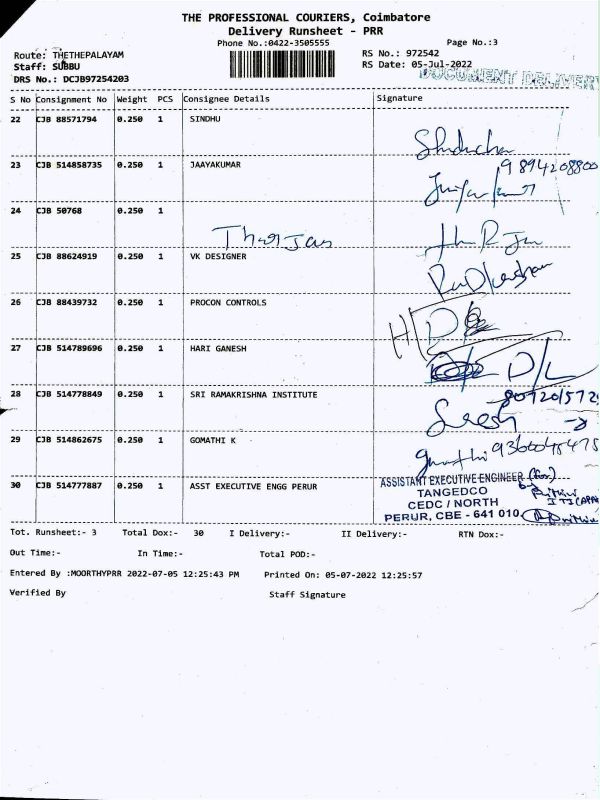 THE PROFESSIONAL COURIERS, Coimbatore
Delivery Runsheet - PRR
Phone No.:0422-3505555
Page No.:3
Route: THETHEPALAYAM
RS No.: 972542
Staff: SUBBU
RS Date: 05-Jul-2022
DRS No.: DCJB97254203
DOCUMENT DELIVERY
S No Consignment No Weight PCS Consignee Details Signature
22 CJB 88571794 0.250 1 SINDHU
23 CJB 514858735 0.250 1 JAAYAKUMAR 9894208800
24 CJB 50768 0.250 1
Tharjan
25 CJB 88624919 0.250 1 VK DESIGNER
26 CJB 88439732 0.250 1 PROCON CONTROLS
27 CJB 514789696 0.250 1 HARI GANESH D/L
28 CJB 514778849 0.250 1 SRI RAMAKRISHNA INSTITUTE
29 CJB 514862675 0.250 1 GOMATHI K
30 CJB 514777887 0.250 1 ASST EXECUTIVE ENGG PERUR
ASSISTANT EXECUTIVE ENGINEER
TANGEDCO
CEDC / NORTH
PERUR, CBE - 641 010.
Tot. Runsheet:- 3 Total Dox:- 30 I Delivery:- II Delivery:- RTN Dox:-
Out Time:- In Time:- Total POD:-
Entered By :MOORTHYPRR 2022-07-05 12:25:43 PM Printed On: 05-07-2022 12:25:57
Verified By Staff Signature